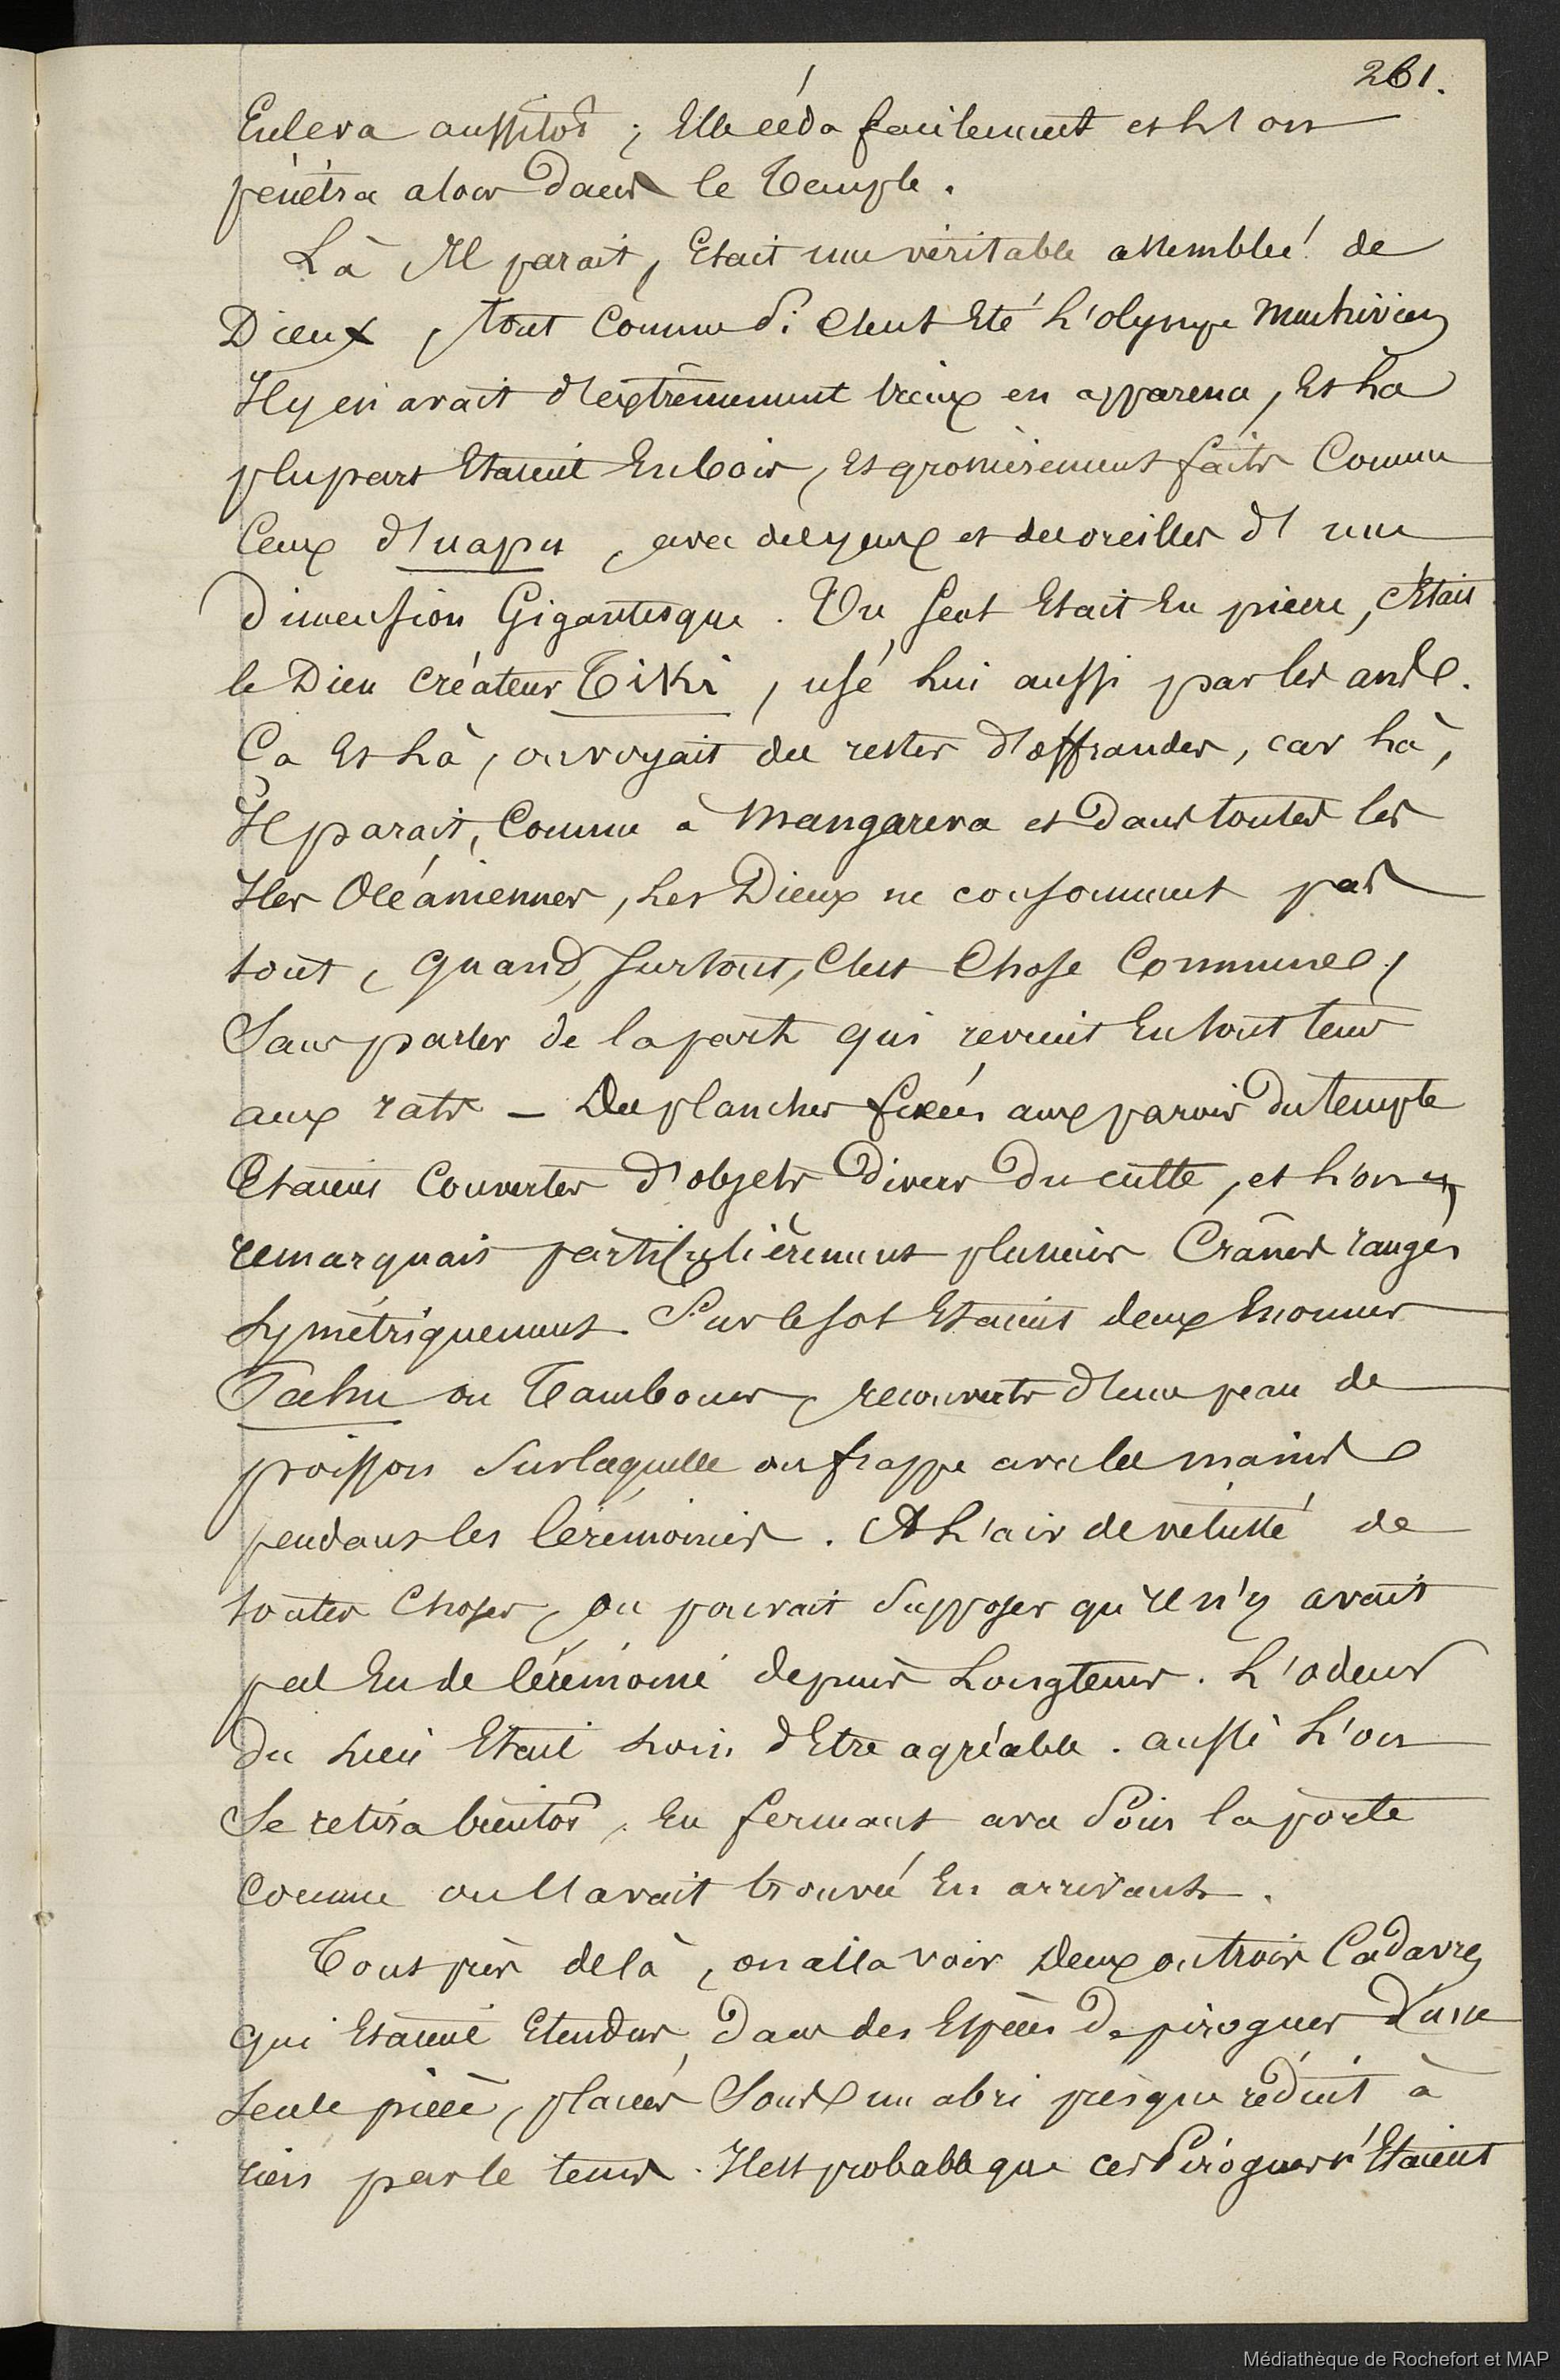 261.
Enleva aussitôt ; Elle céda facilement et l'on
pénétra alors dans le Temple.
Là Il parait, Etait une véritable assemblée de
Dieux, tout comme Si C'eut Eté L'olympe Nukuhivien
Il y en avait d'extrêmement vieux en apparence, Et La
plupart Etaient En bois, Et grossièrement faits Comme
Ceux d'uapu, avec des yeux et des oreilles d'une
dimension Gigantesque. Un Seul Etait En pierre, C'Etait
le Dieu créateur Tiki, usé Lui aussi par les ans.
Ca Et Là, on voyait des restes d'offrandes, car Là,
Il parait, Comme à Mangareva et Dans toutes les
Iles Océaniennes, Les Dieux ne consomment pas
tout, Quand, Surtout, C'est Chose Commune,
Sans parler de la part qui revient En tout tems
aux rats — Des planches fixées aux parois Du temple
Etaient Couvertes d'objets Divers Du culte, et L'on y
remarquait particulièrement plusieurs Crânes rangés
Symétriquement. Sur le sol Etaient deux Enormes
Pahu ou Tambours, recouverts d'une peau de
poisson Sur laquelle on frappe avec les mains
pendant les Cérémonies. A L'air de vétusté de
toutes Choses, on pouvait Supposer qu'Il n'y avait
pas Eu de Cérémonie depuis Longtems. L'odeur
Du Lieu Etait Loin d'Etre agréable. aussi L'on
Se retira bientôt, En fermant avec Soin la porte
Comme on l'avait trouvée En arrivant.
Tout près de là, on alla voir Deux ou trois Cadavres
qui Etaient Etendus, Dans des Espèces De pirogues d'une
Seule pièce, placées Sous un abri presque réduit à
rien par le tems. Il est probable que ces Pirogues n'Etaient
Médiathèque de Rochefort et MAP